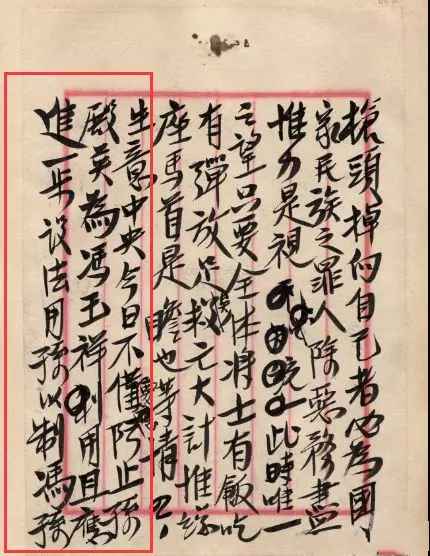 槍頭掉向自己者必為國
家民族之罪人除惡務盡
惟力是視此時唯一
之望只要全体将士有飯吃
有彈放足救亡大計
座馬首是瞻也等情
生意中央今日不僅阻止孫
殿英為馮玉祥利用且應
進一步设法用孫以制馮孫